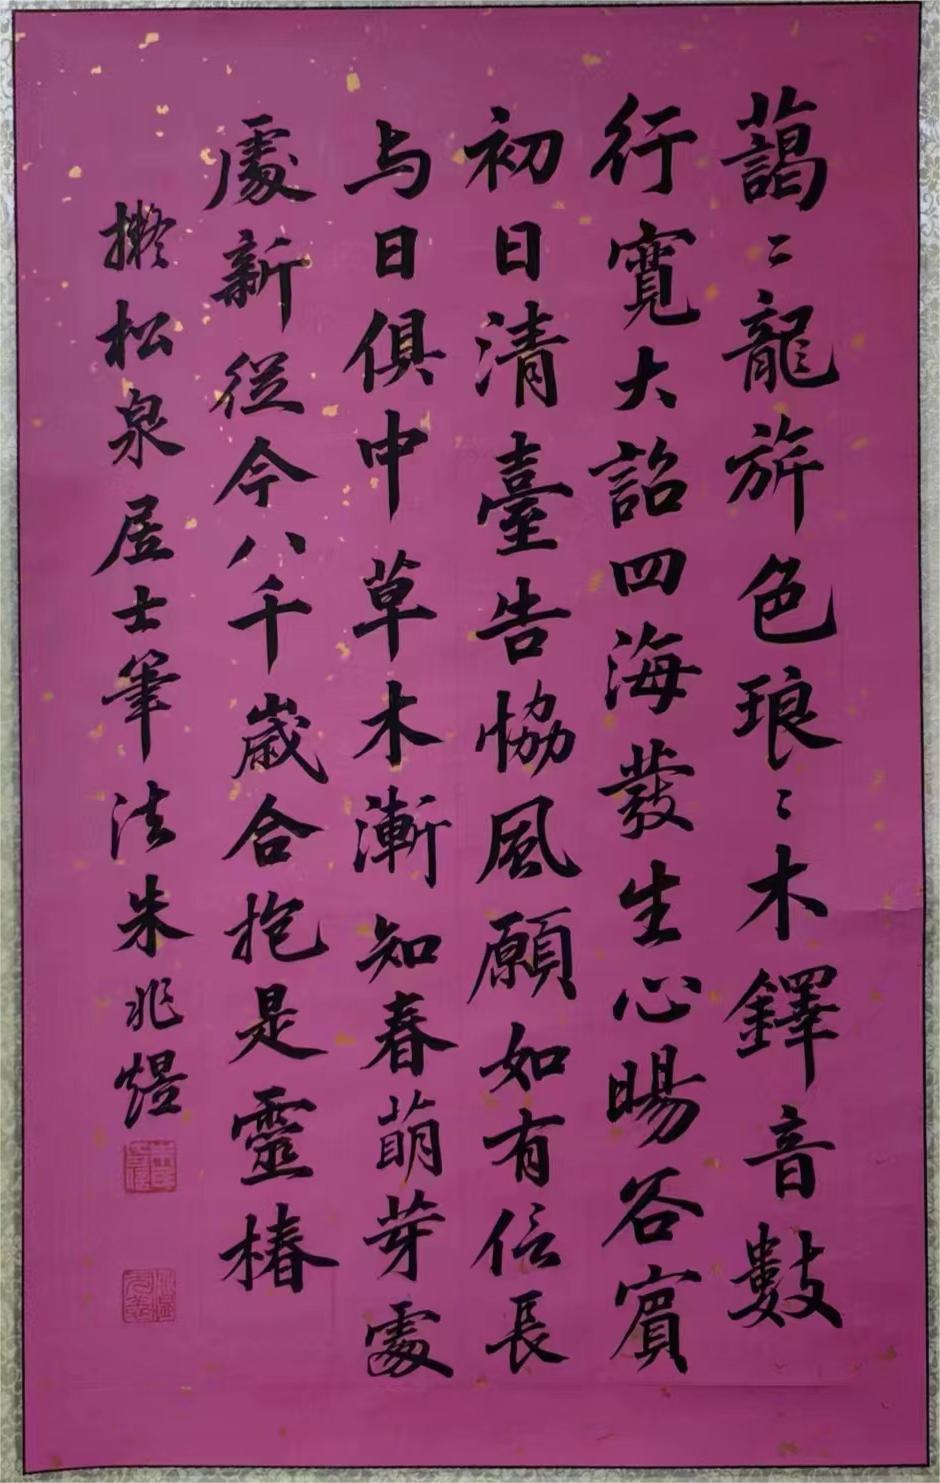 藹〻龍旂色琅〻木鐸音數
行寬大詔四海發生心暘谷賓
初日清臺告協風願如有信長
与日俱中草木漸知春萌芽處
處新從今八千歲合抱是靈椿
擬松泉居士筆法朱兆煜